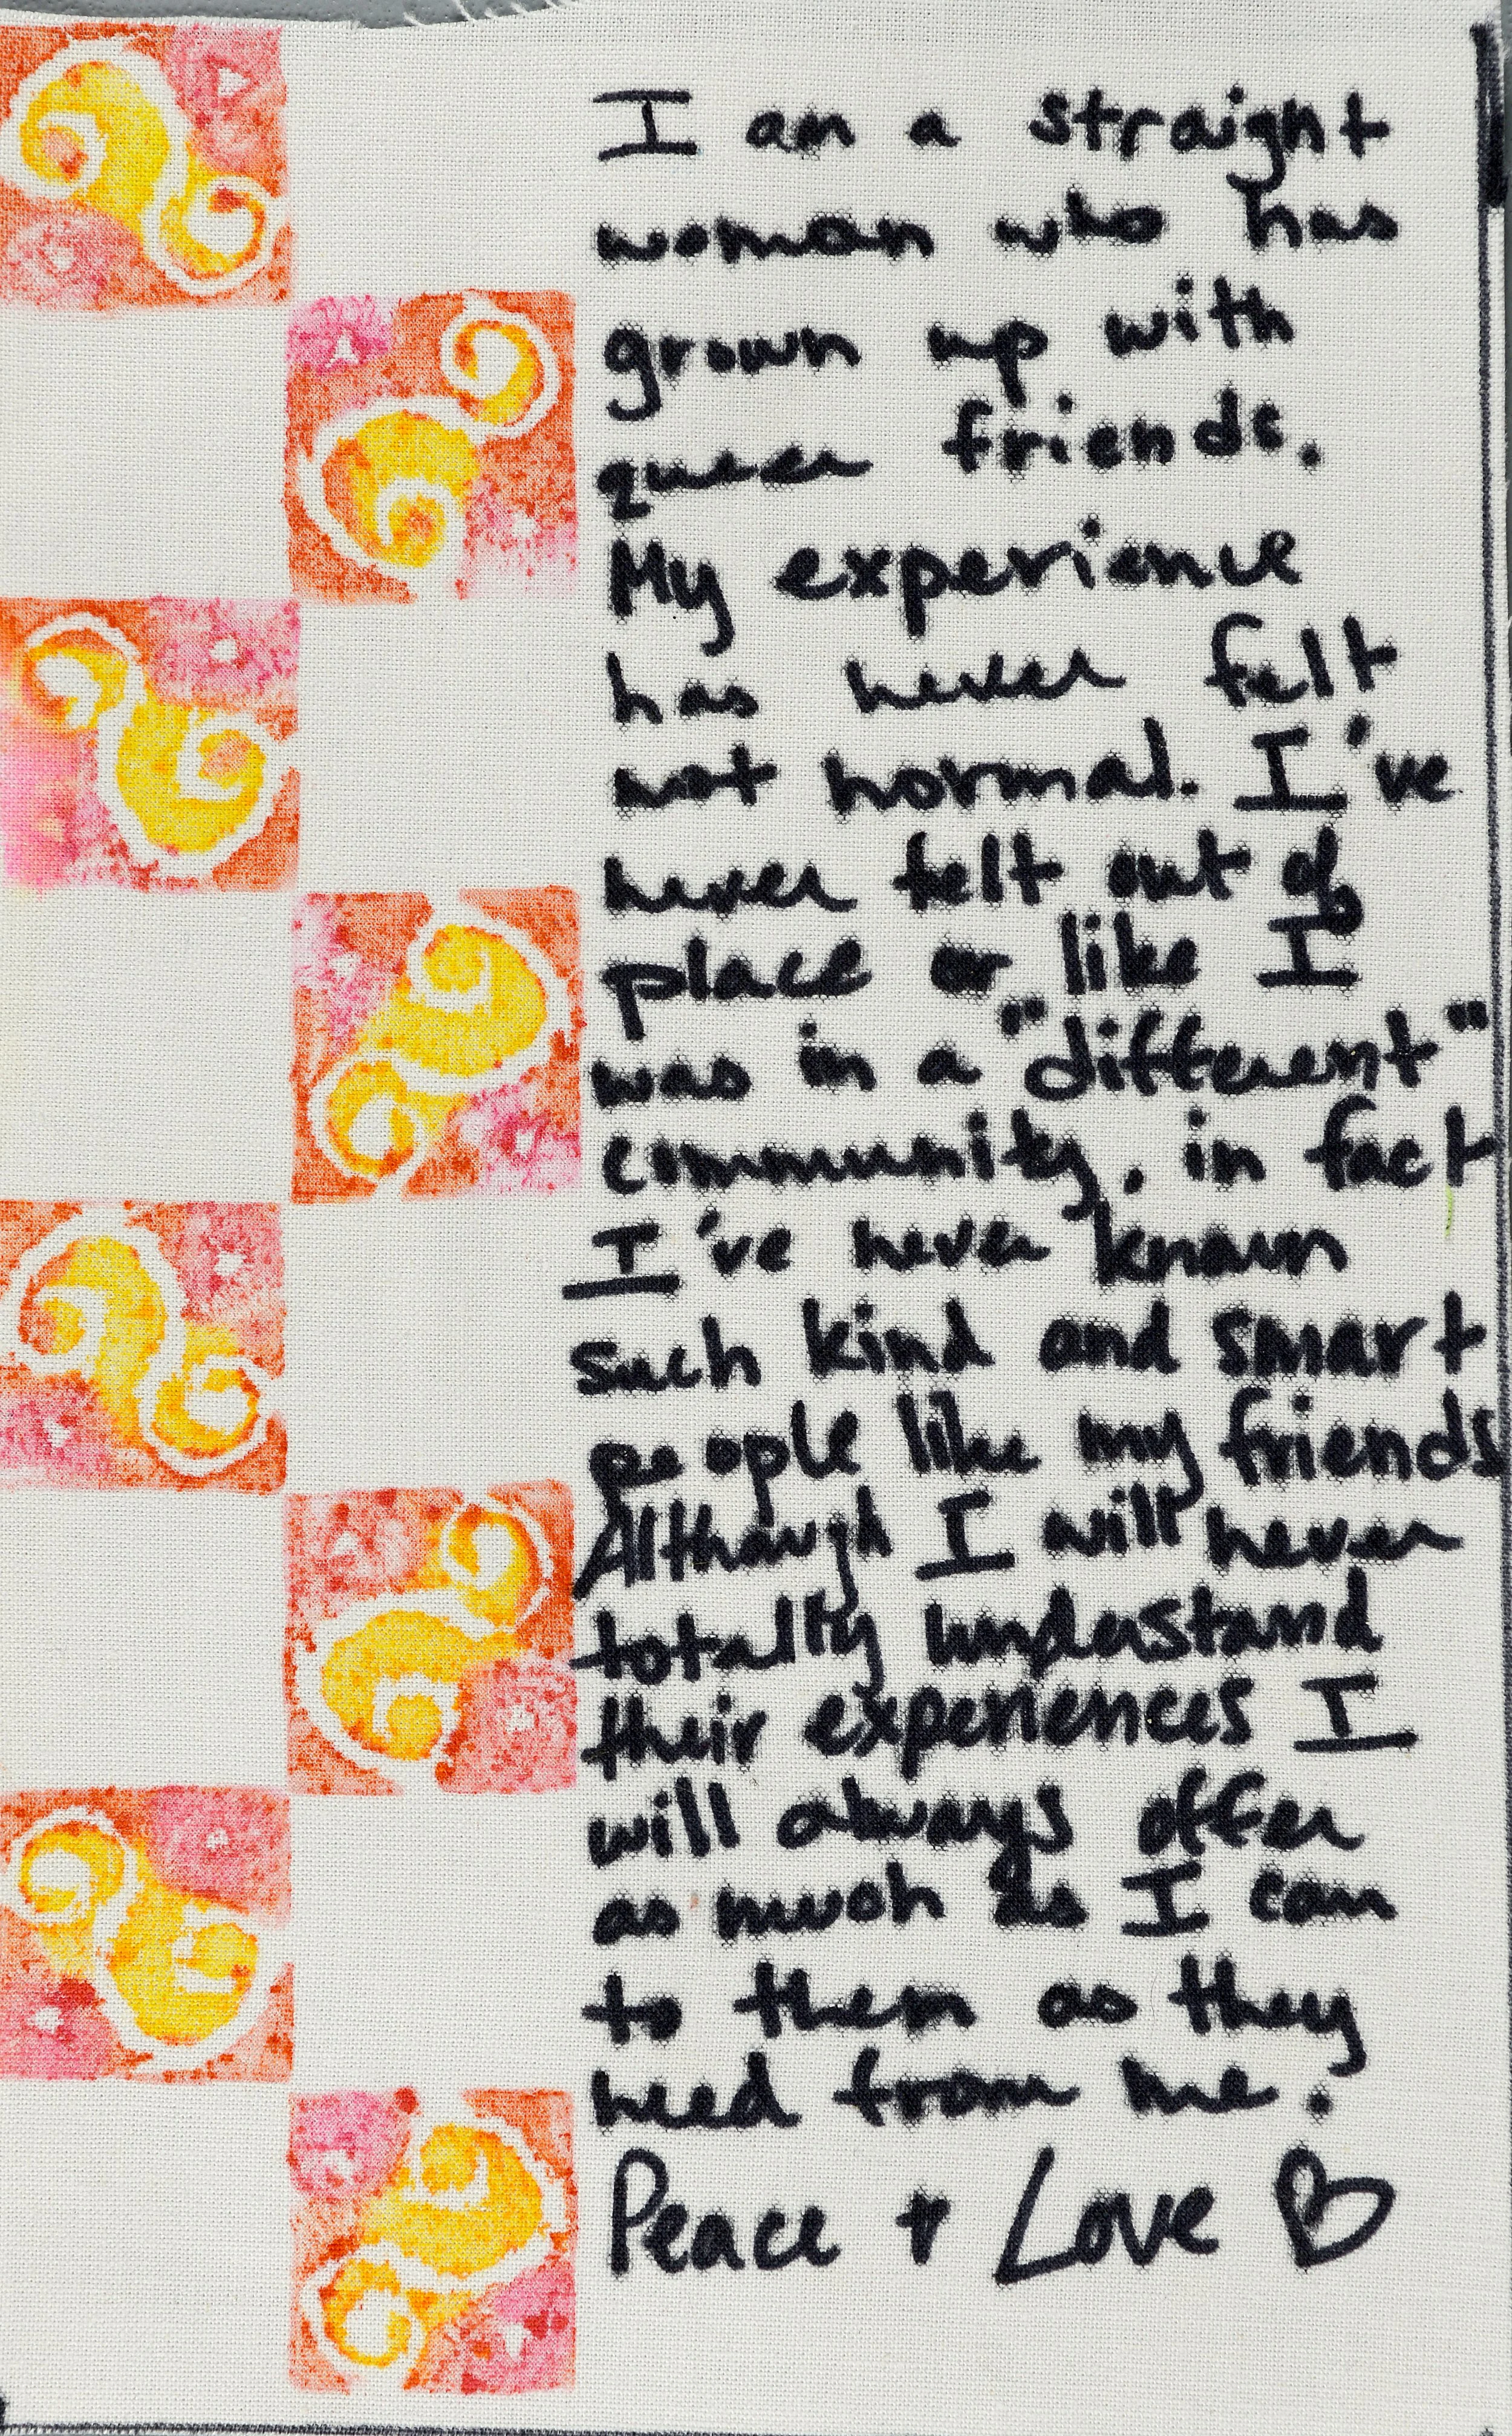 I am a straight
woman who has
grown up with
queer friends.
My experience
has never felt
not normal. I've
never felt out of
place or like I
was in a "different"
community. in fact
I've never known
such kind and smart
people like my friends
Although I will never
totally understand
their experiences I
will always offer
as much as I can
to them as they
need from me.
Peace + Love ♡